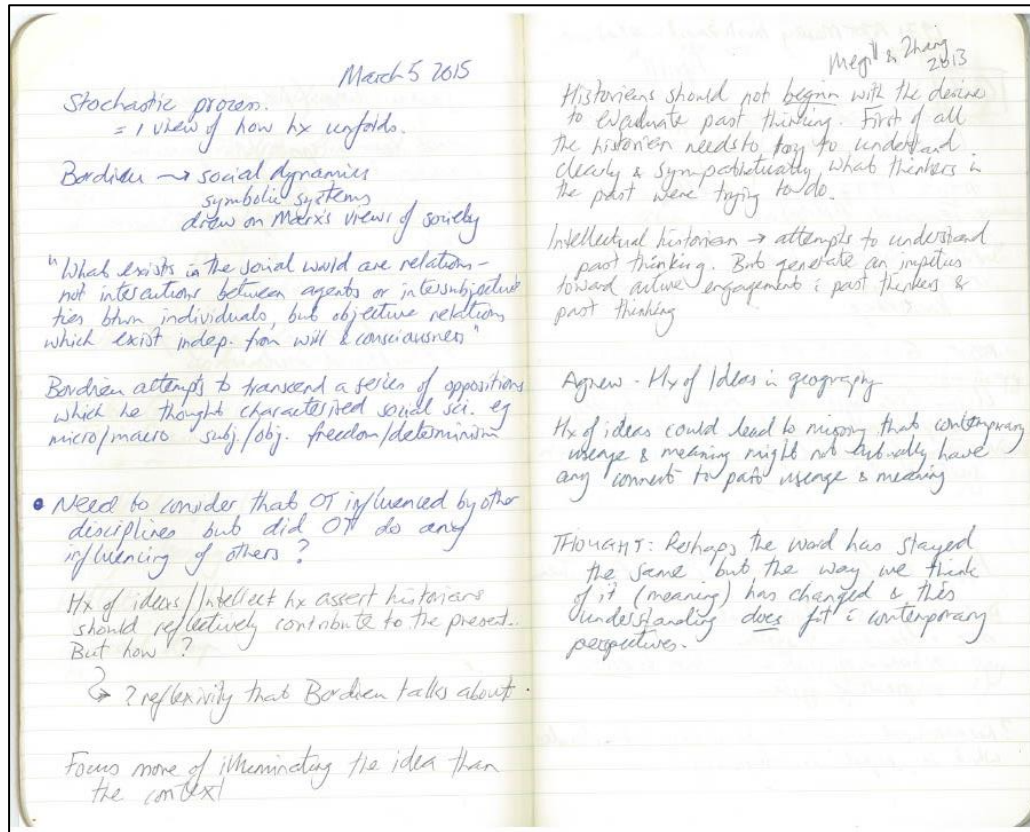 March 5 2015
Stochastic prozess.
= 1 view of how hx unfolds.
Bordieu → social dynamics
symbolic systems
drew on Marx's views of society
"What exists in the social world are relations –
not interactions between agents or intersubjective
ties btwn individuals, but objective relations
which exist indep. from will & consciousness"
Bordieu attempts to transcend a series of oppositions
which he thought characterised social sci. eg
micro/macro subj./obj. freedom/determinism
• Need to consider that OT influenced by other
disciplines but did OT do any
influencing of others?
Hx of ideas/Intellect hx assert historians
should reflectively contribute to the present..
But how?
↳ ? reflexivity that Bordieu talks about.
Focus more of illuminating the idea than
the context
Megill & Zhang
2013
Historians should not begin with the desire
to evaluate past thinking. First of all
the historian needs to try to understand
clearly & sympathetically what thinkers in
the past were trying to do.
Intellectual historian → attempts to understand
past thinking. But generate an impetus
toward active engagement c̄ past thinkers &
past thinking
Agnew - Hx of Ideas in geography
Hx of ideas could lead to missing that contemporary
useage & meaning might not actually have
any connect to past useage & meaning
THOUGHT: Perhaps the word has stayed
the same but the way we think
of it (meaning) has changed & this
understanding does fit c̄ contemporary
perspectives.